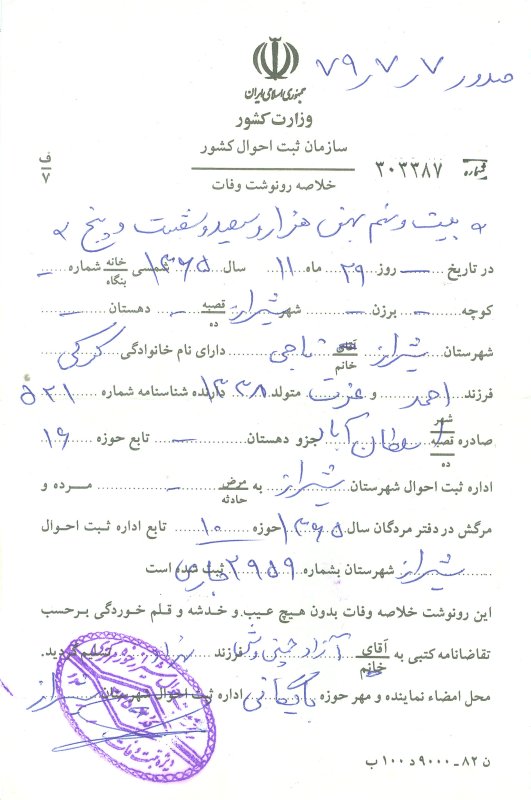 صدور ۷ ر ۷ ر ۷۹
جمهوری اسلامی ایران
وزارت کشور
سازمان ثبت احوال کشور
شماره ۳۰۳۳۸۷
خلاصه رونوشت وفات
ف
۷
بیست و نهم بهمن هزار و سیصد و شصت و پنج
در تاریخ — روز ۲۹ ماه ۱۱ سال ۱۳۶۵ شمسی خانه بنگاه شماره —
کوچه — برزن — شهر شیراز قصبه ده — دهستان —
شهرستان شیراز آقای خانم ناجی دارای نام خانوادگی
فرزند احمد و عزت متولد ۱۳۳۸ دارنده شناسنامه شماره ۵۲۱
صادره شهر قصبه ده سلطان آباد جزو دهستان — تابع حوزه ۱۶
اداره ثبت احوال شهرستان شیراز به مرض حادثه — مرده و
مرگش در دفتر مردگان سال ۱۳۶۵ حوزه ۱۰ تابع اداره ثبت احوال
شیراز شهرستان بشماره ۲۹۵۹ فارس ثبت شده است
این رونوشت خلاصه وفات بدون هیچ عیب و خدشه و قلم خوردگی برحسب
تقاضانامه کتبی به آقای خانم آزاد فرزند تسلیم گردید.
محل امضاء نماینده و مهر حوزه بایگانی اداره ثبت احوال شهرستان شیراز
ویژه ثبت وفات
ن ۸۲ ــ ۹۰۰۰ د ۱۰۰ ب